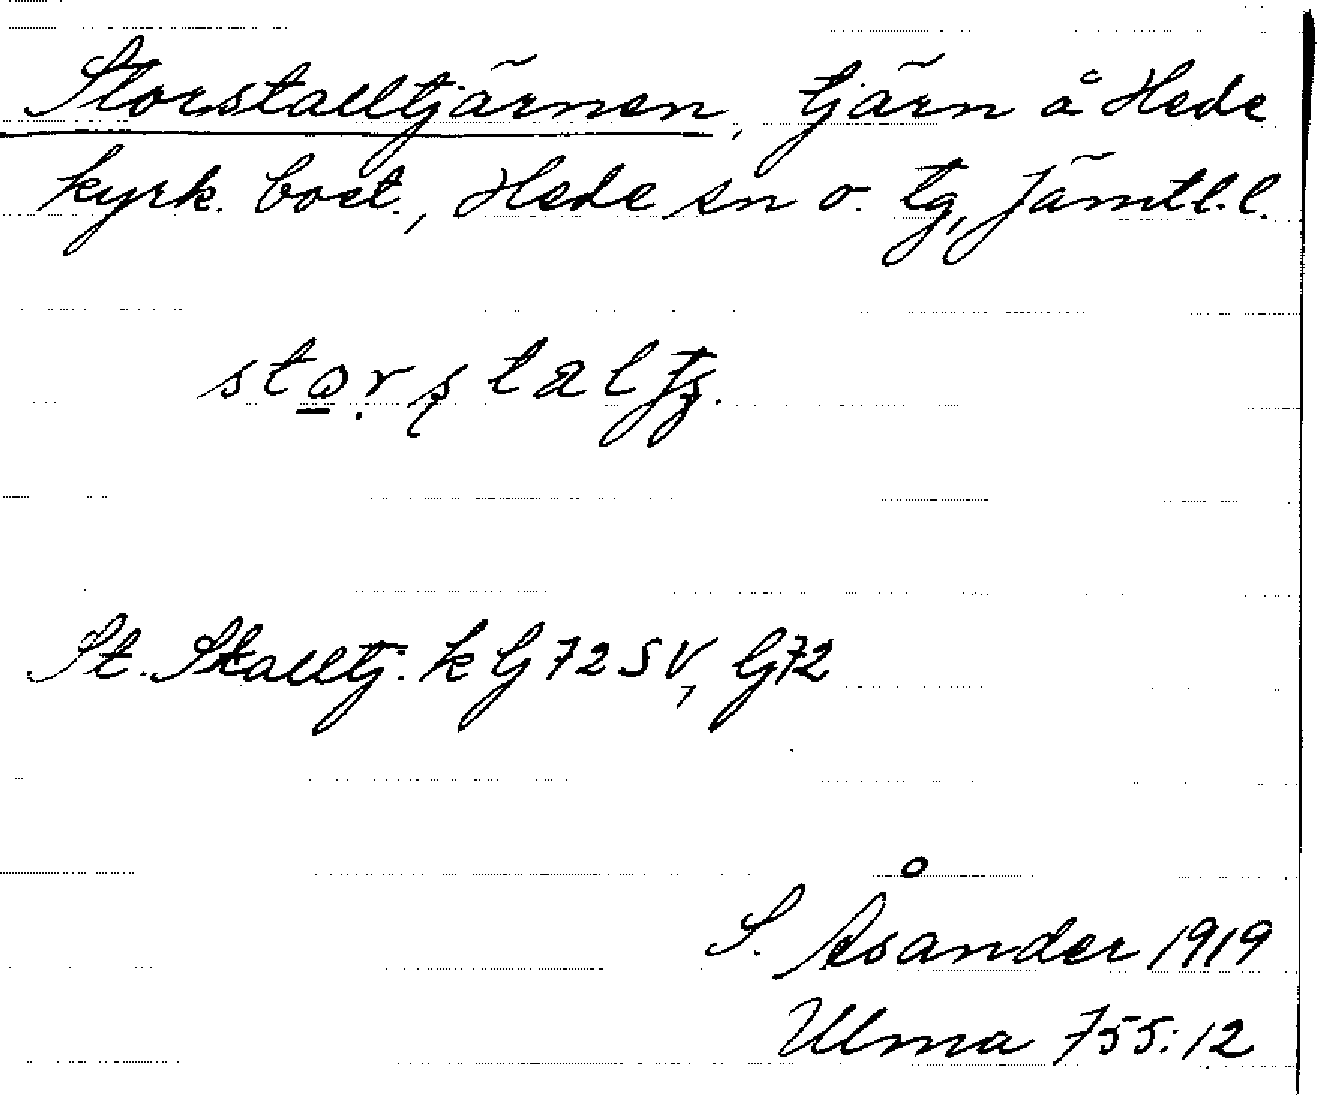 Storstalltjärnen, tjärn å Hede
kyrk. bost., Hede sn o. tg, Jämtl. l.
St. Stalltj. k G72SV, G72
S. Åsander 1919
Ulma 755:12